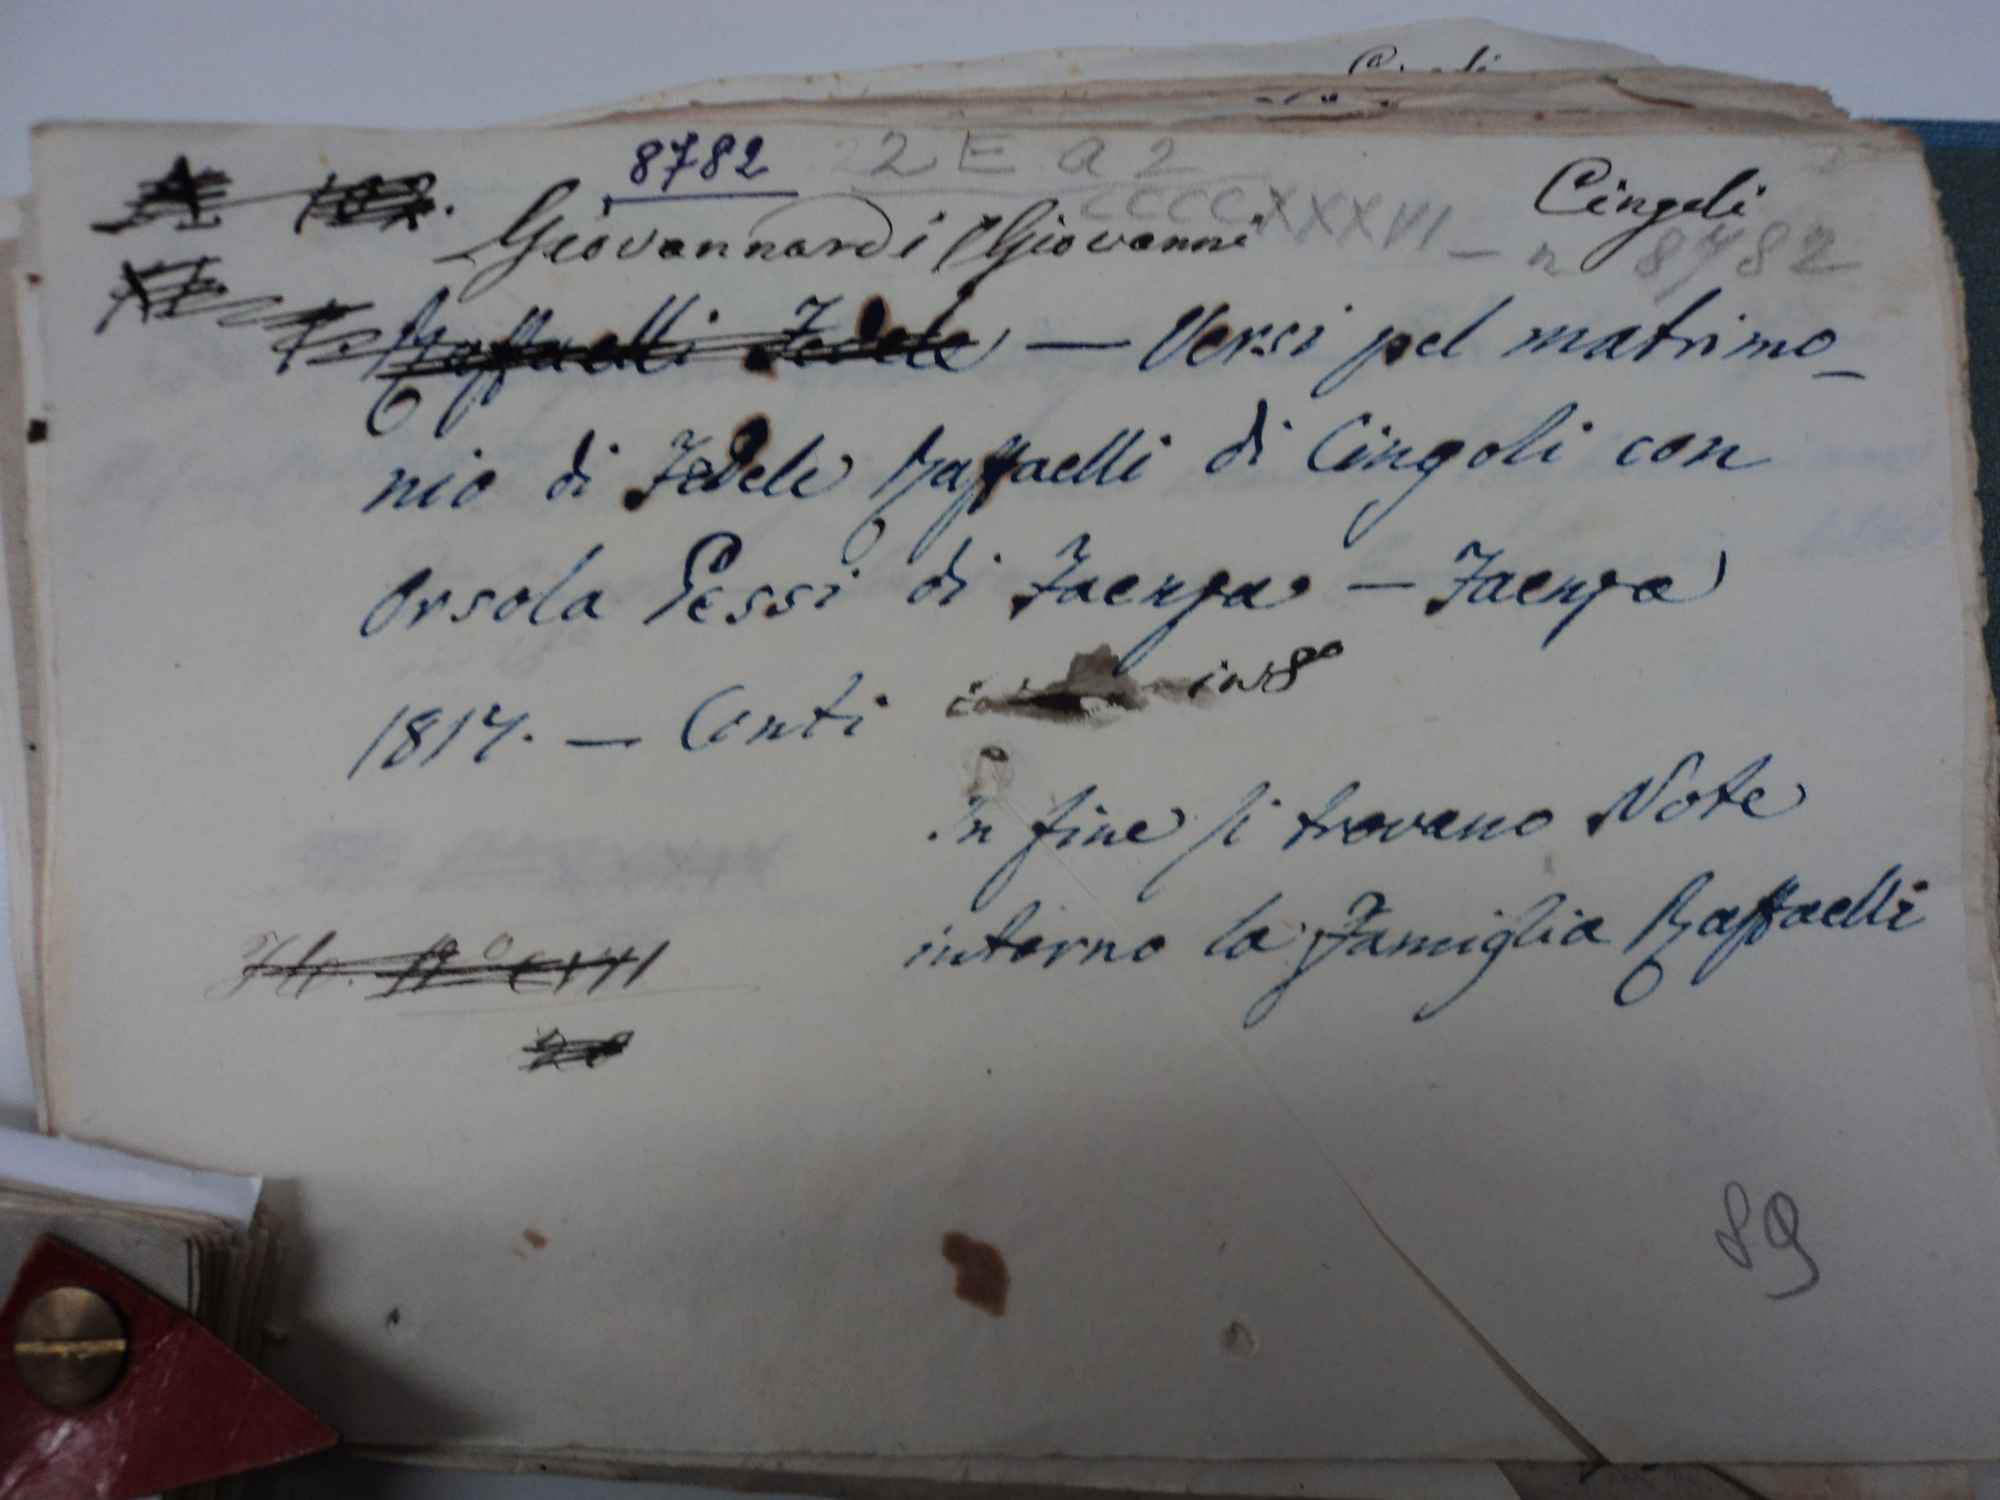 8782 2 E a 2
Cingoli
CCCCXXXVI - n 8782
Giovannardi Giovanni
Raffaelli Fedele — Versi pel matrimo_
nio di Fedele Raffaelli di Cingoli con
Orsola Pessi di Faenza — Faenza
1817. — Conti in 8º
In fine si trovano Note
intorno la Famiglia Raffaelli
89